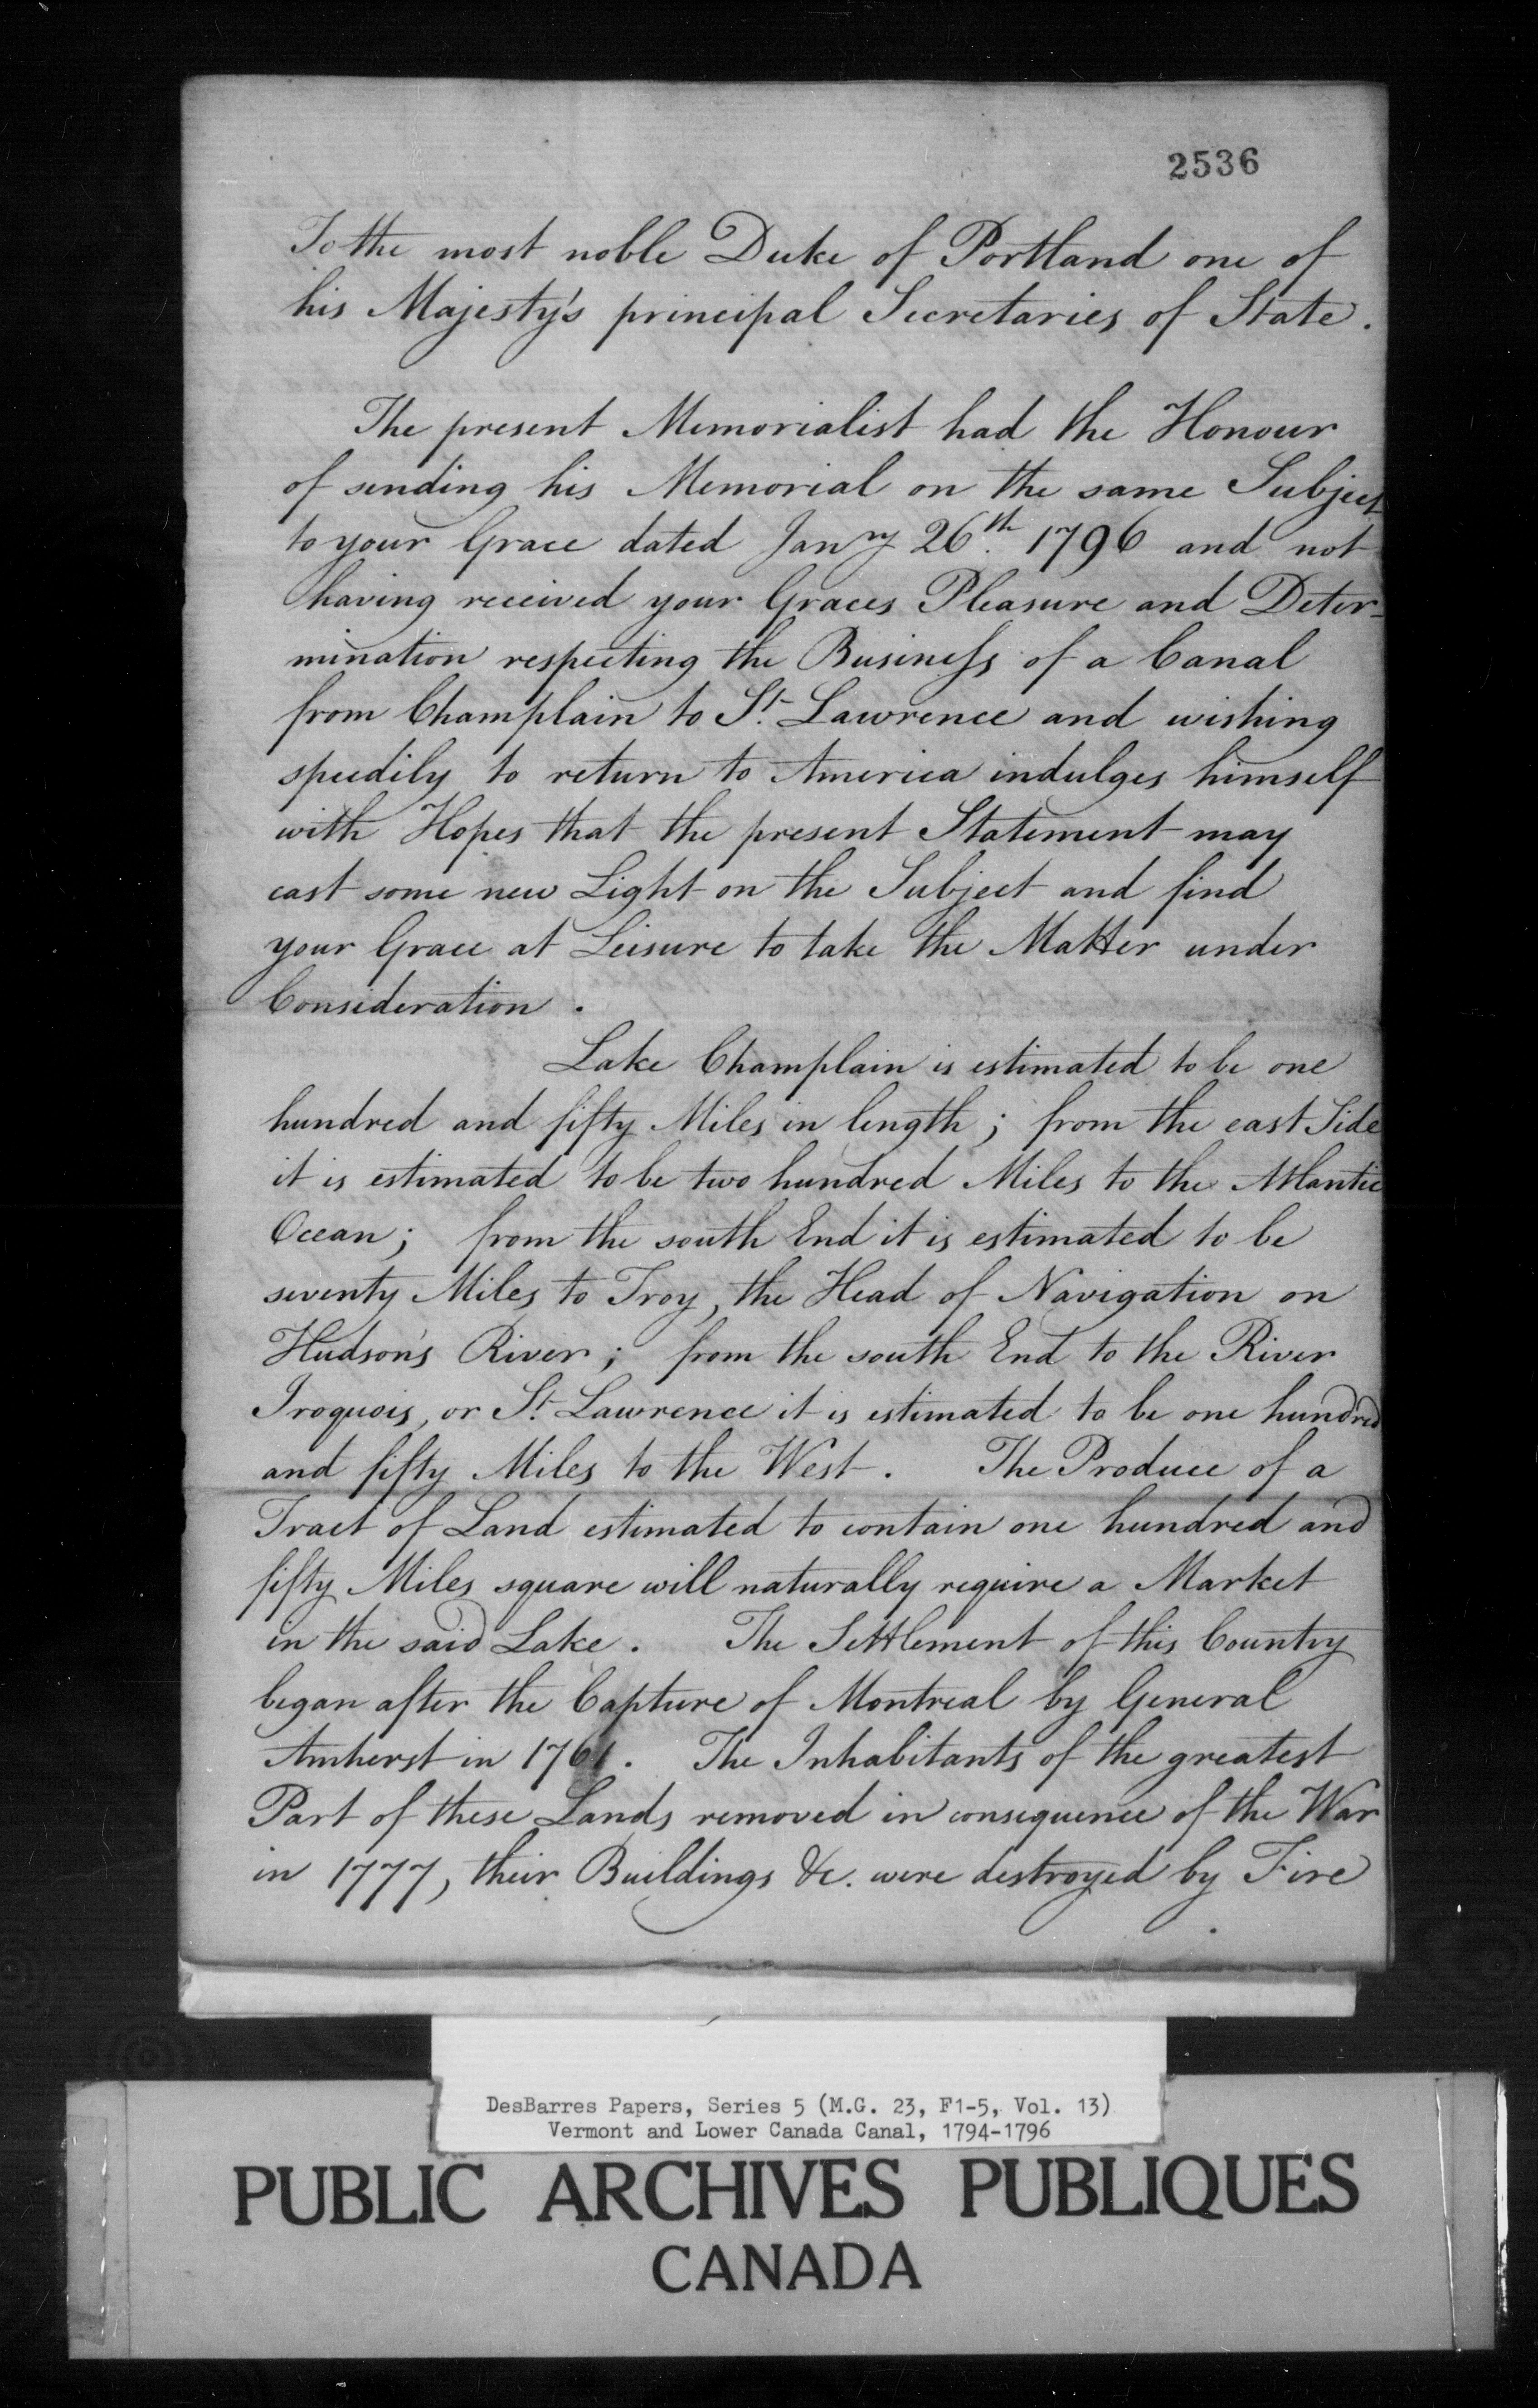 2536
To the most noble Duke of Portland one of
his Majesty's principal Secretaries of State.
The present Memorialist had the Honour
of sending his Memorial on the same Subject
to your Grace dated Janry 26th. 1796 and not
having received your Graces Pleasure and Deter-
mination respecting the Business of a Canal
from Champlain to St. Lawrence and wishing
speedily to return to America indulges himself
with Hopes that the present Statement may
cast some new Light on the Subject and find
your Grace at Leisure to take the Matter under
Consideration.
Lake Champlain is estimated to be one
hundred and fifty Miles in length; from the east Side
it is estimated to be two hundred Miles to the Atlantic
Ocean; from the south End it is estimated to be
seventy Miles to Troy, the Head of Navigation on
Hudson's River; from the south End to the River
Iroquois, or St. Lawrence it is estimated to be one hundred
and fifty Miles to the West. The Produce of a
Tract of Land estimated to contain one hundred and
fifty Miles square will naturally require a Market
in the said Lake. The Settlement of this Country
began after the Capture of Montreal by General
Amherst in 1761. The Inhabitants of the greatest
Part of these Lands removed in consequence of the War
in 1777, their Buildings &c. were destroyed by Fire
DesBarres Papers, Series 5 (M.G. 23, F1-5, Vol. 13)
Vermont and Lower Canada Canal, 1794-1796
PUBLIC ARCHIVES PUBLIQUES
CANADA